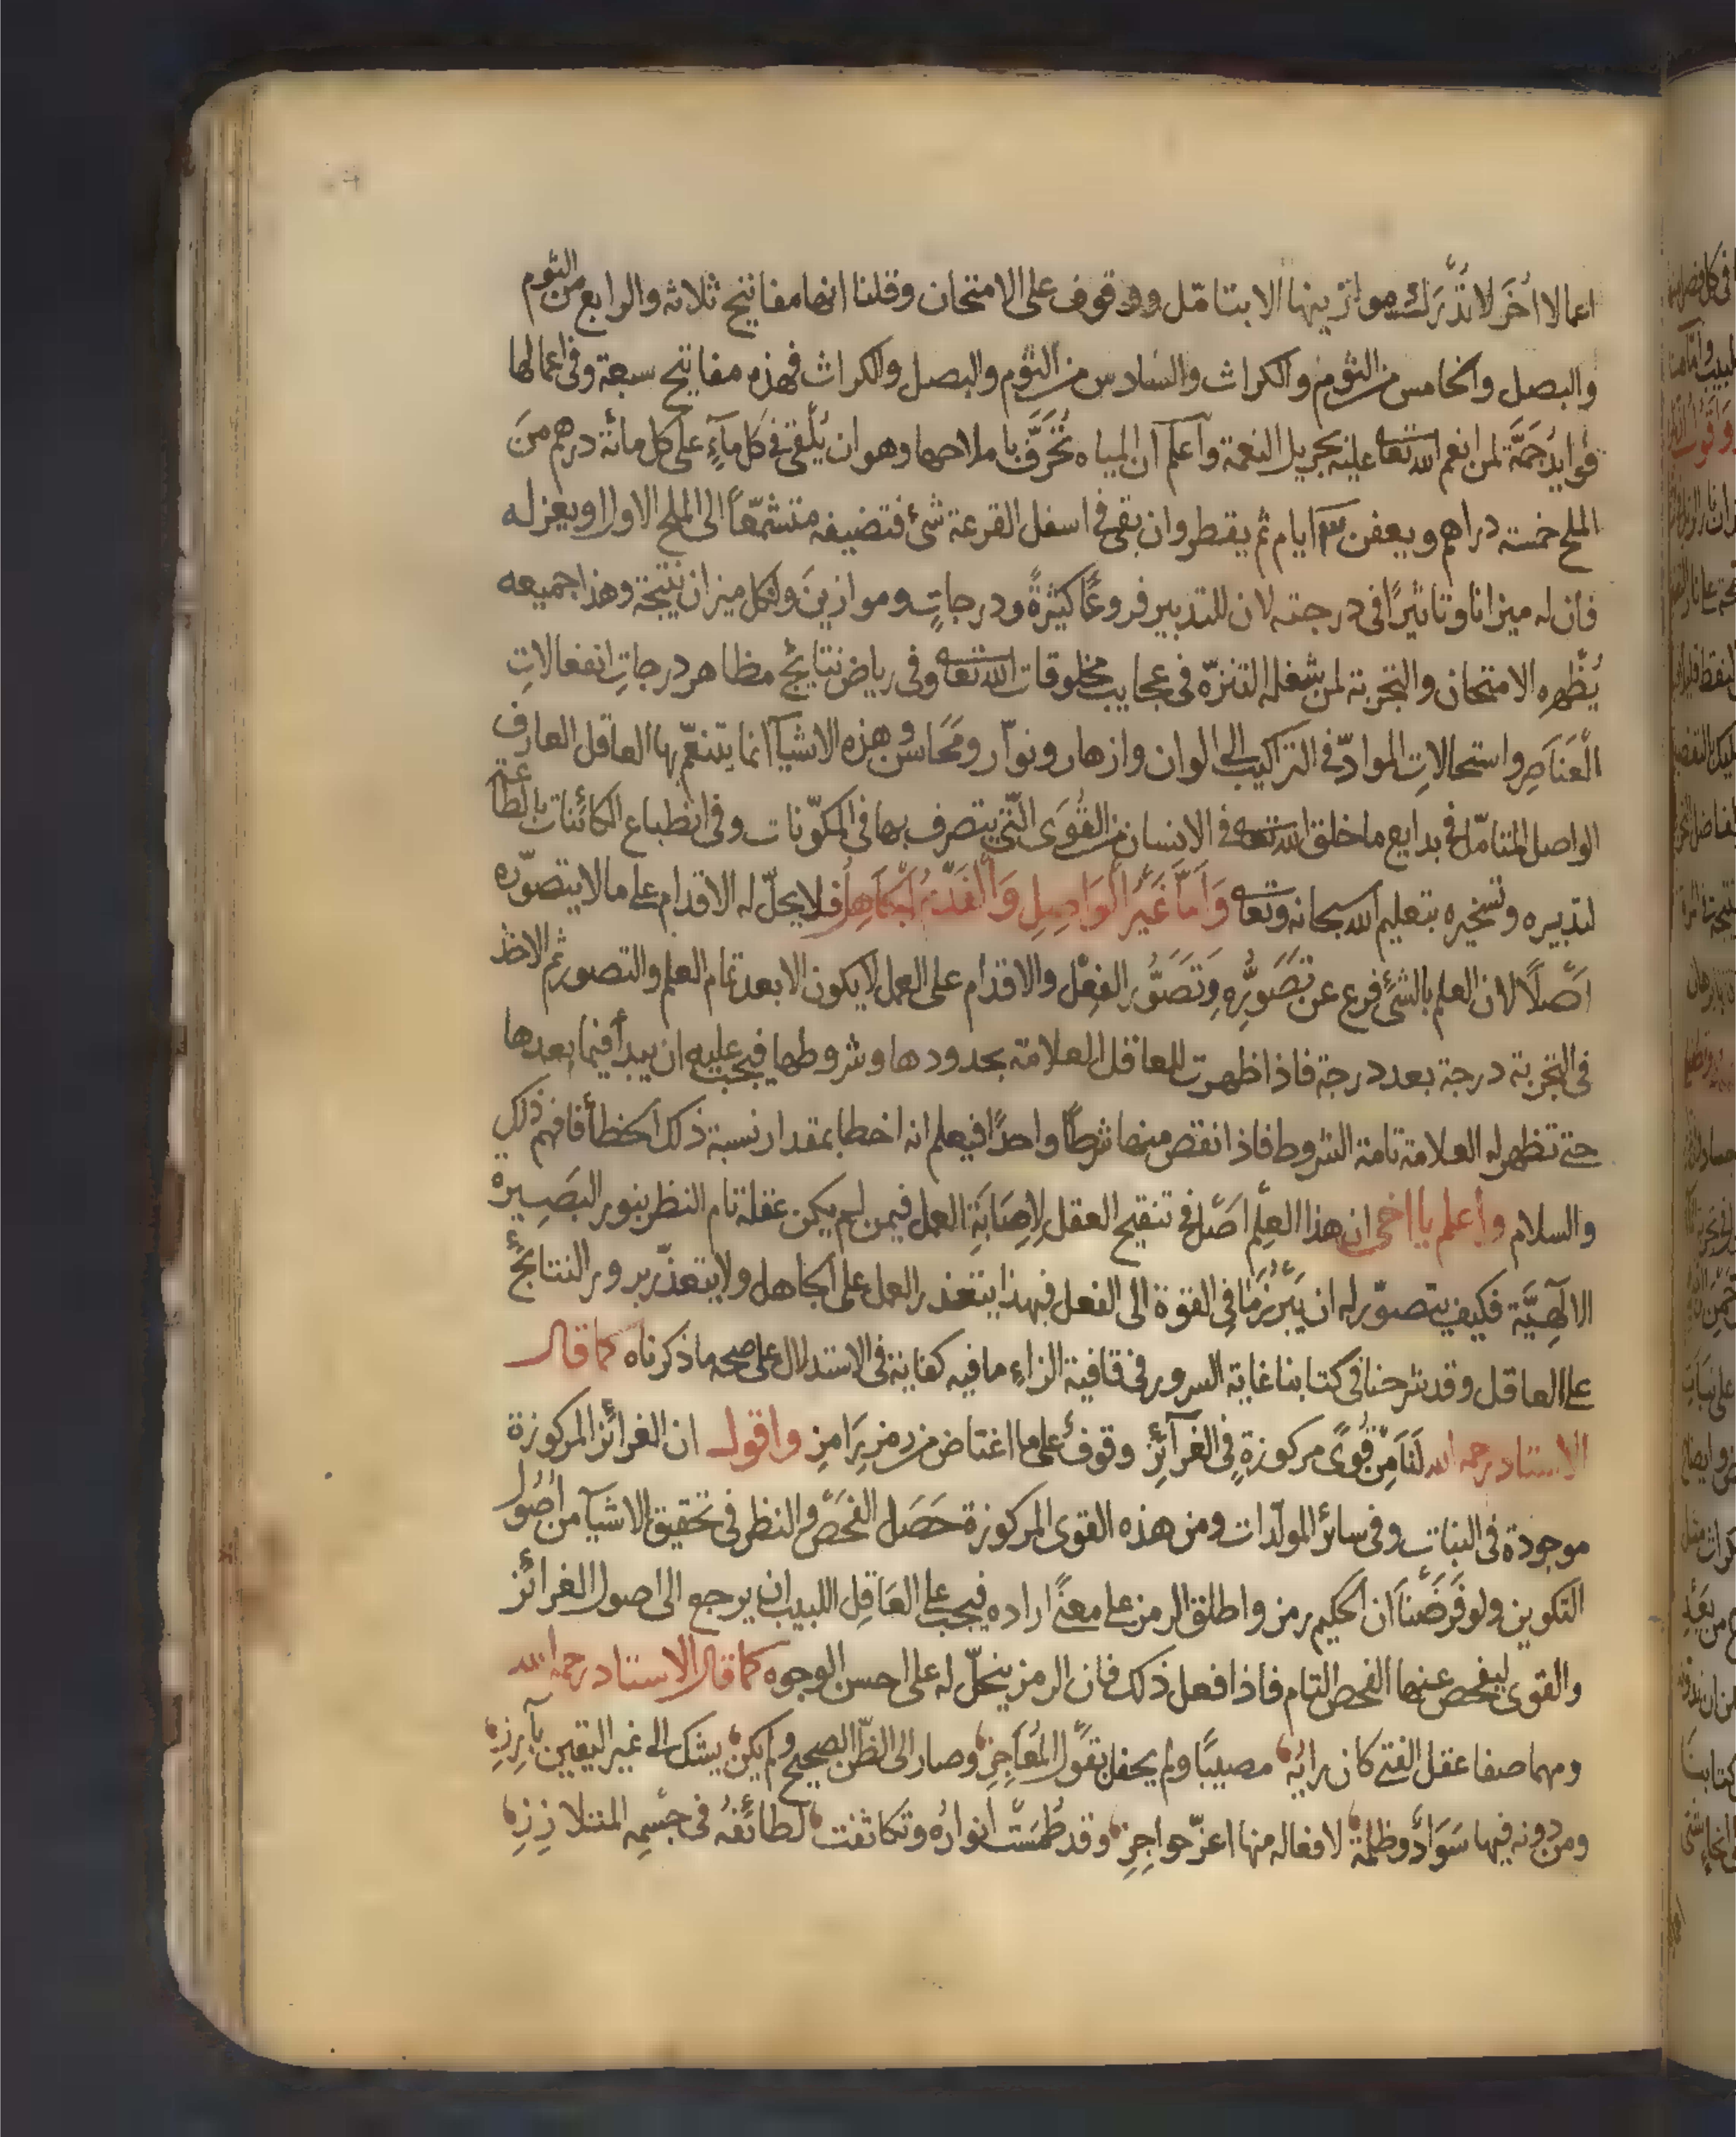 اعمالا اُخَر لا تُدْرَك موازينها الا بتامّل ووقوف على الامتحان وقلنا انها مفاتيح ثلاثه والرابع من الثوم
والبصل والخامس من الثوم والكراث والسادس من الثوم والبصل والكراث فهذه مفاتيح سبعة وفى اعمالها
فوايدُ جَمَّة لمن انعم الله تعا عليه بجزيل النعمة واعلم ان المياه تُحَرَّف باملاحها وهو ان يُلقى فى كل ماءٍ على كل مائة درهم من
الملح خمسة دراهم ويعفن ايام ثم يقطر وان بقى فى اسفل القرعة شئ فتضيفه متشمّعاً الى الملح الاول او يعزله
فان له ميزانا وتاثيرًا فى درجته لان للتدبير فروعًا كثيرةً ودرجاتٍ وموازينَ ولكل ميزان نتيجة وهذا جميعه
يُظهره الامتحان والتجربة لمن شغله التنزّه فى عجايب مخلوقات الله تعا وفى رياض نتايج مظاهر درجاتِ انفعالاتِ
العَنَاصِر واستحالاتِ الموادّ فى التراكيب الى الوان وازهار ونوّار ومَحَاسن وهذه الاشيآ انما يتنعّم بها العاقل العارف
الواصل المتامّل فى بدايع ما خلق الله تعا فى الانسان من القُوَى الّتى يتصرف بها فى المكوّنات وفى انطباع الكائنات بالطاعة
لتدبيره وتسخيره بتعليم الله سبحانه وتعا وَامّا غَيرُ الوَاصِلِ وَالْفَدْمُ الجَاهِلُ فلا يحلّ له الاقدام على ما لا يتصوّره
اَصْلاً لان العلم بالشئ فرع عن تَصَوُّرِهِ وَتَصَوُّر الفِعْل والاقدام على العمل لا يكون الا بعد تمام العلم والتصور ثم الاخذ
فى التجربة درجة بعد درجة فاذا ظهرت للعاقل العلامة بحدودها وشروطها فيجب عليه ان يبدأ فيما بعدها
حتى تظهر له العلامة تامة الشروط فاذا نقص منها شرطًا واحدًا فيعلم انه اخطا بمقدار نسبة ذلك الخطأ فافهم ذلك
والسلام واعلم يا اخى ان هذا العِلْم اَصْل فى تنقيح العقل لِاِصَابَةِ العمل فيمن لم يكن عقله تام النظر بنور البَصِيرة
الالَهِيَّة فكيف يتصوّر له ان يَبْرُزَ مَا فى القوة الى الفعل فبهذا يتعذر العمل على الجاهل ولا يتعذّر بروز النتايج
على العاقل وقد شرحنا فى كتابنا غاية السرور فى قافية الزاء ما فيه كفاية فى الاستدلال على صحه ما ذكرناه كما قال
الاستاد رحمه الله لَنَا مِنْ قُوًى مركوزةٍ فى الغرآئزِ وقوفٌ على ما اغتاض من رمز رَامِزِ واقول ان الغرائز المركوزة
موجودة فى النبات وفى سائر المولّدات ومن هذه القوى المركوزة حَصَل الفَحْص والنظر فى تحقيق الاشيآ من اُصُول
التكوين ولو فَرَضْنَا ان الحكيم رمز واطلق الرمز على معنًى اراده فيجب على العَاقِل اللبيب ان يرجع الى اصول الغرائز
والقوى ليفحص عنها الفحص التام فاذا فعل ذلك فان الرمز ينحلّ له على احسن الوجوه كما قال الاستاد رحمه الله
ومهما صفا عقل الفتى كان رايُه مصيبًا ولم يحفل بقَول المُعَاجِزِ وصار الى الظنّ الصحيح ولم يكن يشك الى غير اليقين بآرِزِ
ومن دونه فيها سَوَادٌ وظلمة لافعاله منها اعزّ حواجِزِ وقد طُمِسَت انوارُه وتكاثفت لطائفُه فى جِسْمِهِ المتلازِزِ